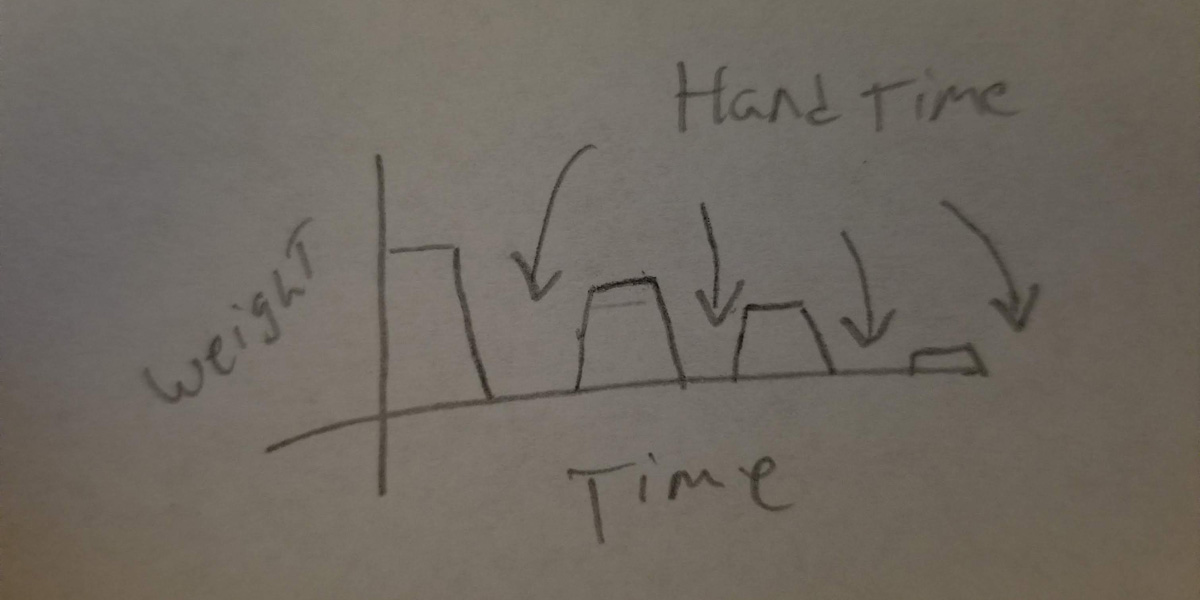 Hand Time
weight
Time